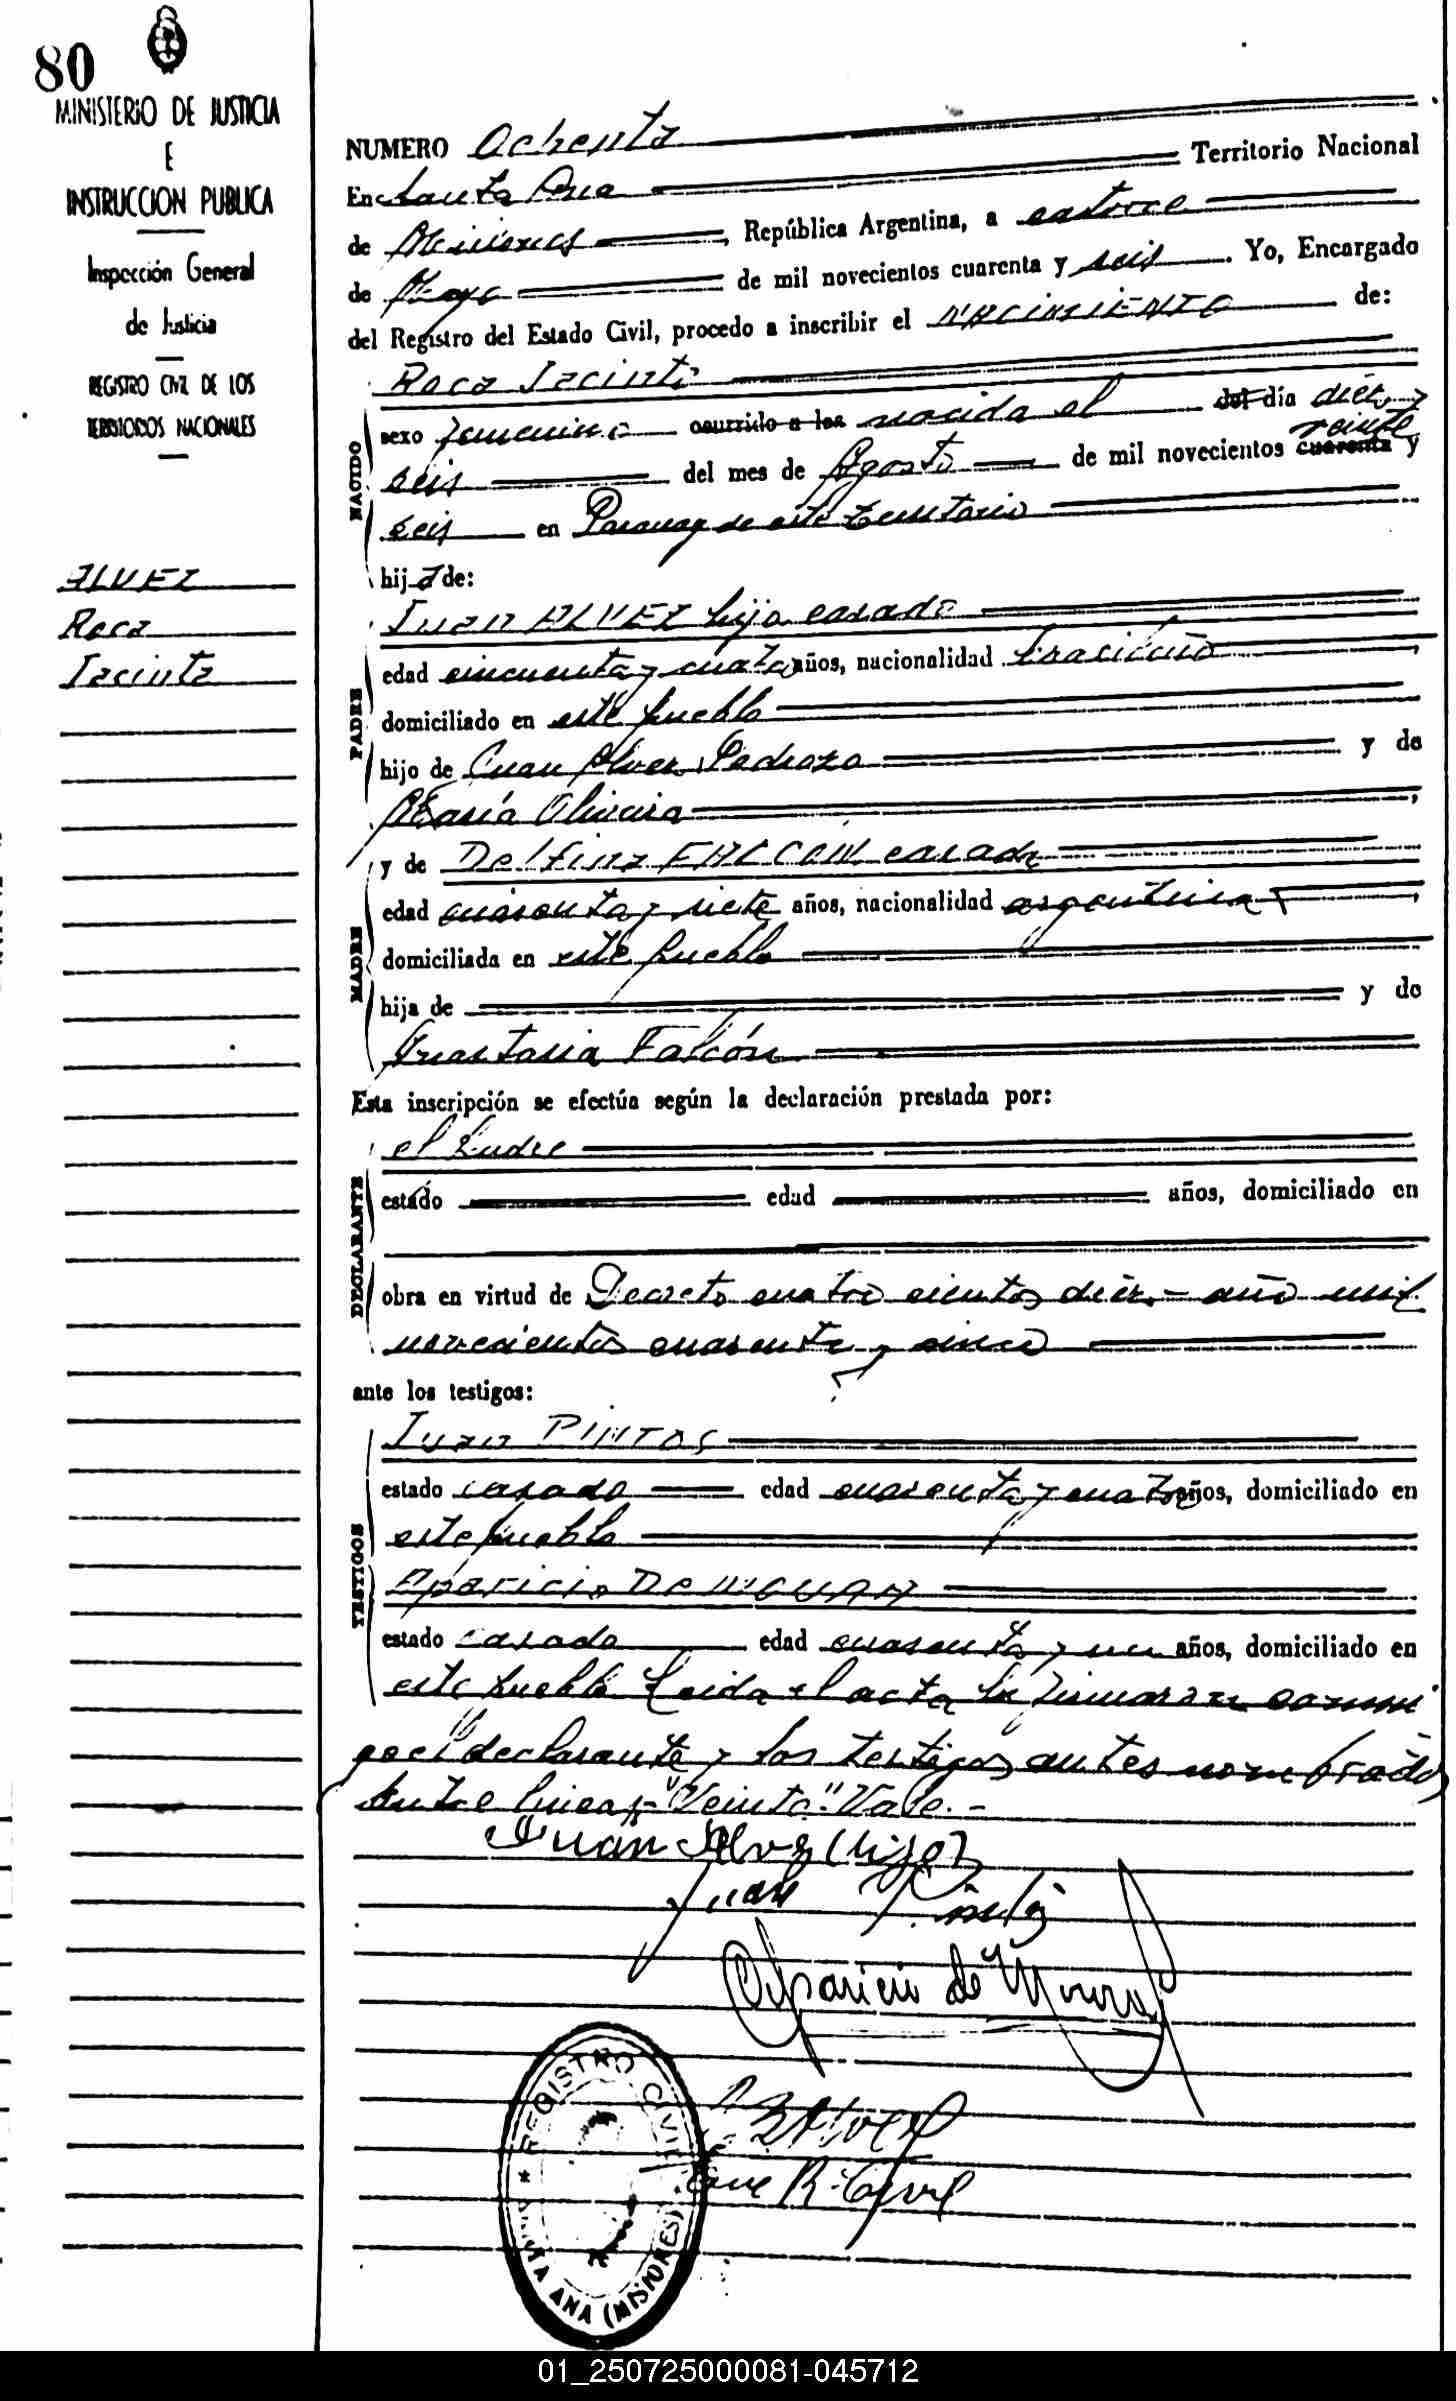 80
MINISTERIO DE JUSTICIA
E
INSTRUCCION PUBLICA
Inspección General
de Justicia
REGISTRO CIVIL DE LOS
TERRITORIOS NACIONALES
ALVEZ
Roca
Jacinta
NUMERO Ochenta
En Santa Ana Territorio Nacional
de Misiones, República Argentina, a catorce
de Mayo de mil novecientos cuarenta y seis. Yo, Encargado
del Registro del Estado Civil, procedo a inscribir el NACIMIENTO de:
Roca Jacinta
NACIDO
sexo femenino ocurrido a las nacida el del día diez y
seis del mes de Agosto de mil novecientos cuarenta veinte y
seis en de este territorio
hija de:
PADRE
Juan ALVEZ hijo casado
edad cincuenta y cuatro años, nacionalidad brasileño
domiciliado en este pueblo
hijo de Juan Alvez Pedrozo y de
María Oliveira
MADRE
y de Delfina FALCON casada
edad cuarenta y siete años, nacionalidad argentina
domiciliada en este pueblo
hija de y de
Anastasia Falcón
Esta inscripción se efectúa según la declaración prestada por:
DECLARANTE
el padre
estado edad años, domiciliado en
obra en virtud de Decreto cuatro cientos diez.- año mil
novecientos cuarenta y cinco
ante los testigos:
TESTIGOS
Juan PINTOS
estado casado edad cuarenta y cuatro años, domiciliado en
este pueblo
Aparicio De
estado casado edad cuarenta y un años, domiciliado en
este pueblo Leida el acta la firmaron conmi
go el declarante y los testigos antes nombrados
Entre lineas "Veinte" Vale.-
Juan Alvez (hijo)
Juan
Aparicio de
R. Civil
REGISTRO CIVIL
SANTA ANA (MISIONES)
01_250725000081-045712